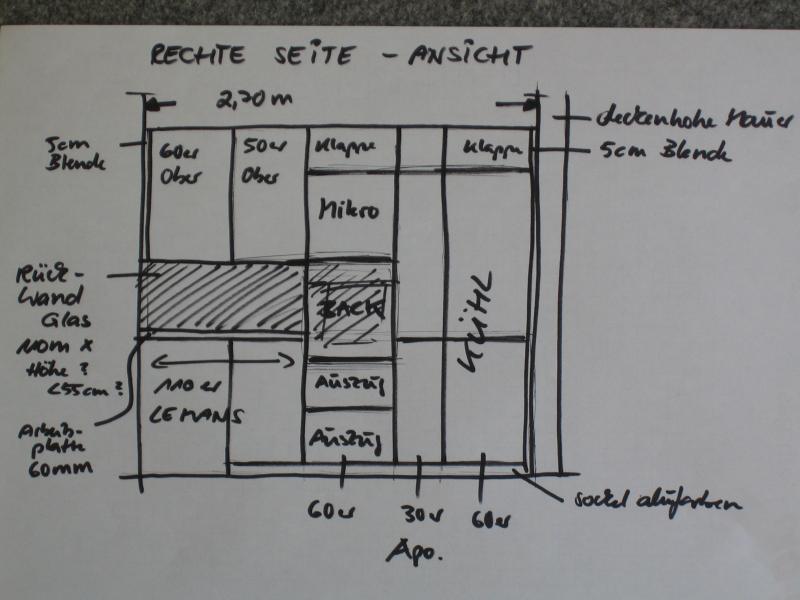 RECHTE SEITE - ANSICHT
2,70m
deckenhohe Mauer
5cm
Blende
5cm Blende
60er
Ober
50er
Ober
Klappe
Klappe
Mikro
Rück-
wand
Glas
110m x
Höhe?
<55cm?
BACK
KÜHL
110er
LEMANS
Auszug
Auszug
Arbeits-
platte
60mm
Sockel alufarben
60er
30er
60er
Apo.